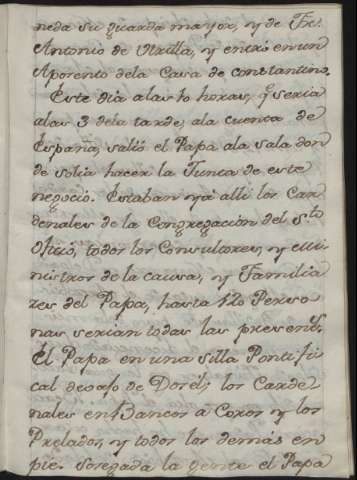 neda su guarda mayor, y de Fr.
Antonio de Utrilla, y entró en un
Aporento dela Casa de constantino.
Este dia alas 10 horas, q̃ seria
alas 3 dela tarde, ala cuenta de
España, salió el Papa ala sala don
de solia hacer la Junta de este
negocio. Estaban ya alli los Car
denales de la Congregacion del S.to
Oficio, todos los Consultores, y mi
nistros de la causa, y Familia
res del Papa, hasta 120 Perso
nas serian todas las presentes.
El Papa en una silla Pontifi
cal devajo de Dosél; los Carde
nales en Bancos à Coros y los
Prelados, y todos los demas en
pie. Sosegada la gente el Papa